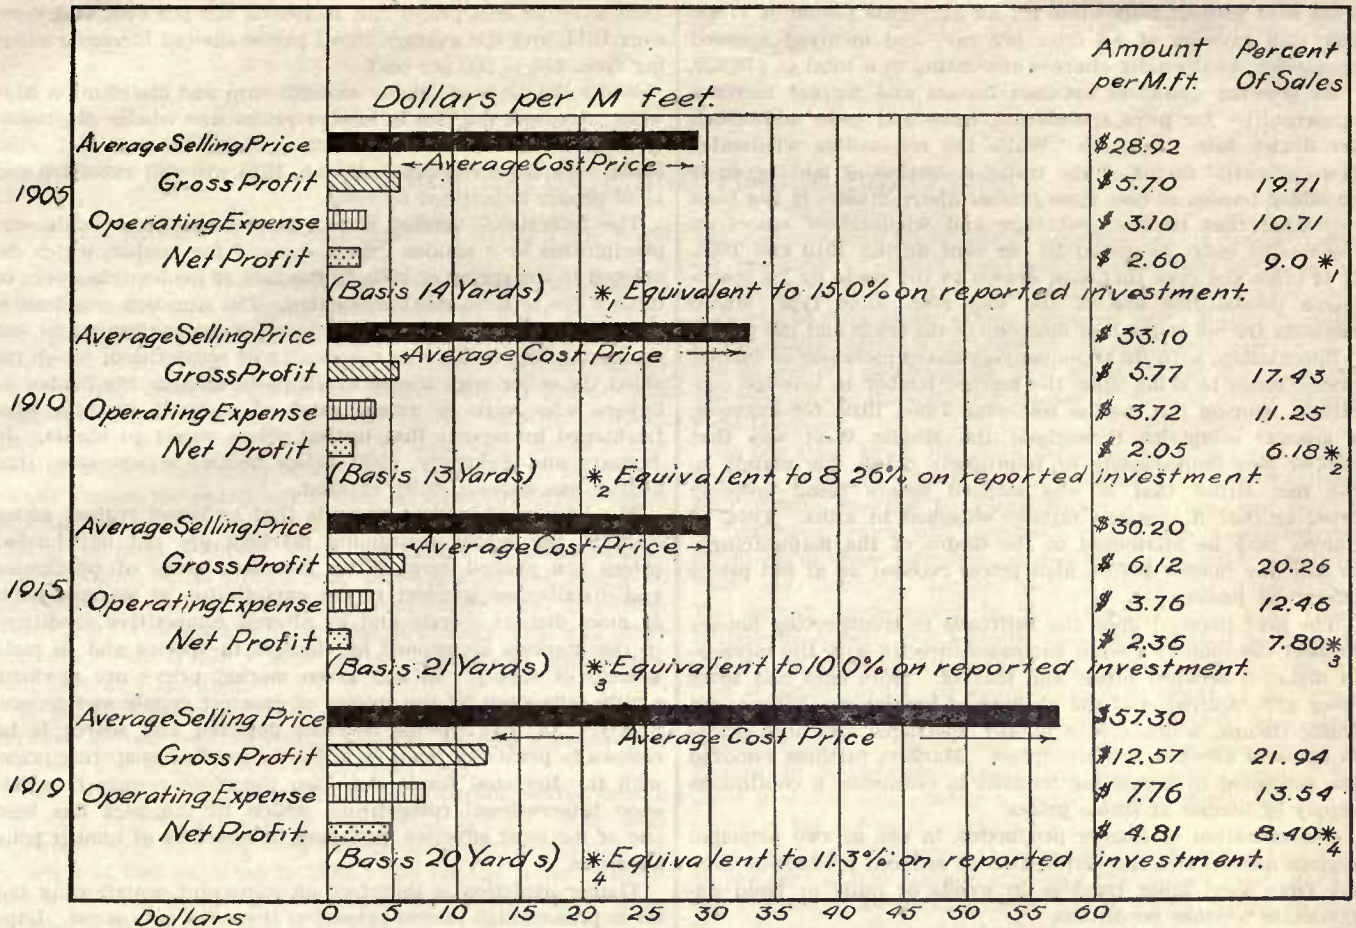 Amount Percent
per M.Ft. Of Sales
Dollars per M feet.
Average Selling Price $28.92
Average Cost Price
Gross Profit $ 5.70 19.71
1905
Operating Expense $ 3.10 10.71
Net Profit $ 2.60 9.0 *1
(Basis 14 Yards) *1 Equivalent to 15.0% on reported investment.
Average Selling Price $33.10
Average Cost Price
Gross Profit $ 5.77 17.43
1910
Operating Expense $ 3.72 11.25
Net Profit $ 2.05 6.18 *2
(Basis 13 Yards) *2 Equivalent to 8.26% on reported investment.
Average Selling Price $30.20
Average Cost Price
Gross Profit $ 6.12 20.26
1915
Operating Expense $ 3.76 12.46
Net Profit $ 2.36 7.80 *3
(Basis 21 Yards) *3 Equivalent to 10.0% on reported investment.
Average Selling Price $57.30
Average Cost Price
Gross Profit $12.57 21.94
1919
Operating Expense $ 7.76 13.54
Net Profit $ 4.81 8.40 *4
(Basis 20 Yards) *4 Equivalent to 11.3% on reported investment.
Dollars 0 5 10 15 20 25 30 35 40 45 50 55 60